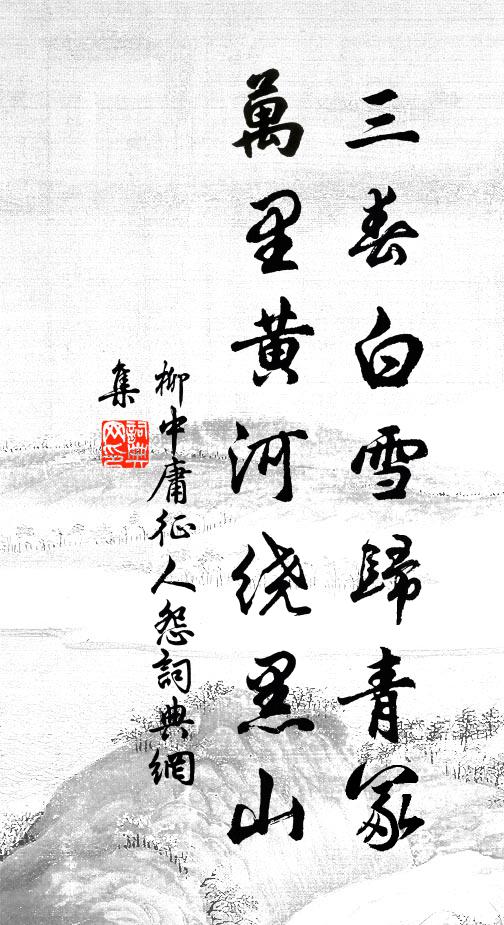 三春白雪歸青冢
萬里黄河繞黑山
柳中庸征人怨詞典網
集